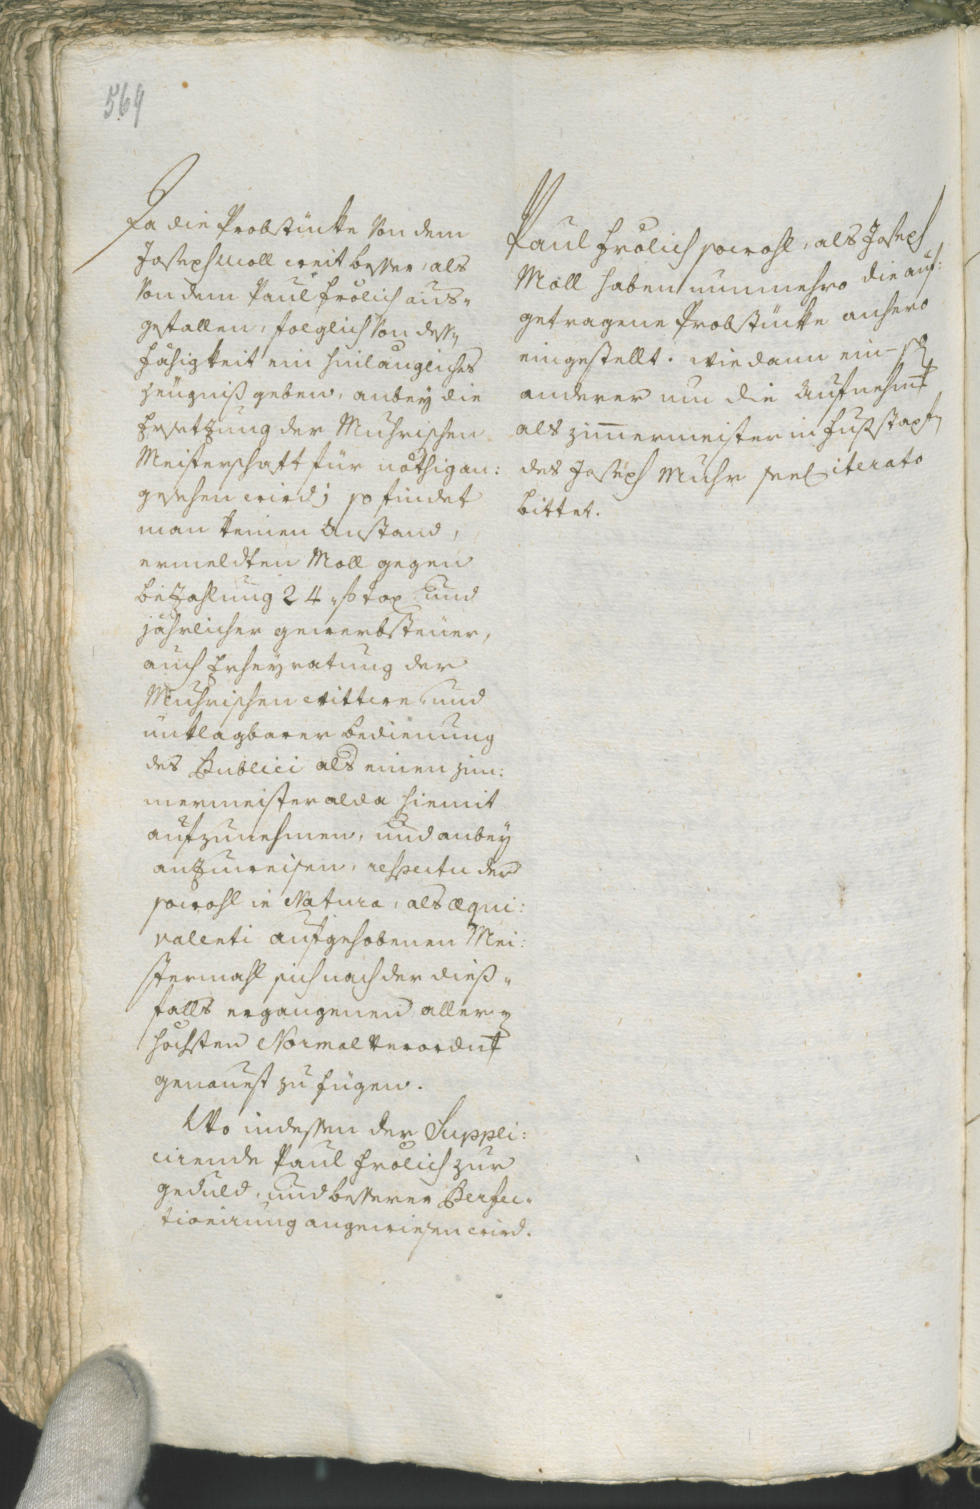 569
Da die Probstücke von dem
Joseph Moll weit besser, als
von dem Paul Frölich aus„
gefallen, folglich von dess„
Fähigkeit ein hinlängliches
Zeugniß geben, anbey die
Ersetzung der Muhrischen
Meisterschaft für nöthig an:
gesehen wird; so findet
man keinen Anstand,
ermeldten Moll gegen
Bezahlung 24 f tax und
jährlicher gewerbsteuer,
auch Erheyratung der
Muhrischen Wittwe, und
unklagbarer Bedienung
des Publici als einen Zim:
mermeister alda hiemit
aufzunehmen, und anbey
anzuweisen, respectu der
sowohl in Natura, als æqui:
valenti aufgehobenen Mei:
stermahl sich nach der dieß„
falls ergangenen aller„
höchsten Normal Verordnt
genauest zu fügen.
Wo indessen der Suppli:
cirende Paul Frölich zur
geduld, und besserer Perfec„
tionirung angewiesen wird.
Paul Frölich sowohl, als Joseph
Moll haben nunmehro die auf:
getragene Probstücke anhero
eingestellt. wie dann ein-
anderer um die Aufnehmt
als Zimmermeister in Fußstapf
des Joseph Muhr seel iterato
bittet.